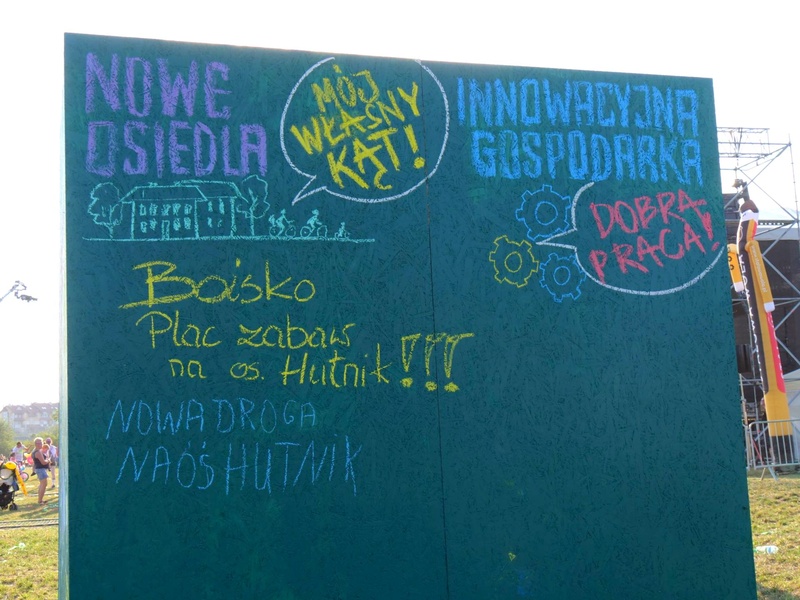 NOWE
OSIEDLA
MÓJ
WŁASNY
KĄT!
INNOWACYJNA
GOSPODARKA
DOBRA
PRACA!
Boisko
Plac zabaw
na os. Hutnik!!!
NOWA DROGA
NA OŚ HUTNiK